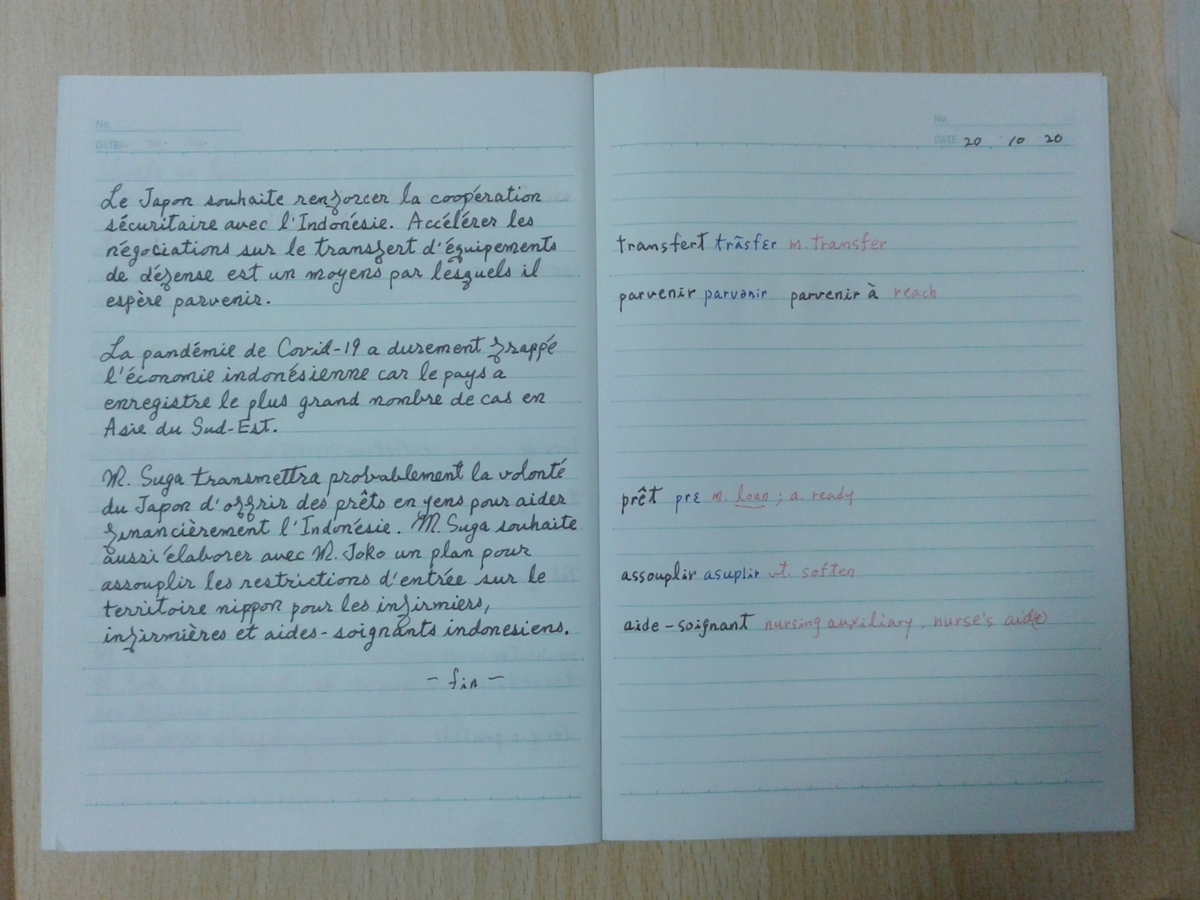 No.
DATE
Le Japon souhaite renforcer la coopération
sécuritaire avec l'Indonésie. Accélérer les
négociations sur le transfert d'équipements
de défense est un moyens par lesquels il
espère parvenir.
La pandémie de Covid-19 a durement frappé
l'économie indonésienne car le pays a
enregistre le plus grand nombre de cas en
Asie du Sud-Est.
M. Suga transmettra probablement la volonté
du Japon d'offrir des prêts en yens pour aider
financièrement l'Indonésie. M. Suga souhaite
aussi élaborer avec M. Joko un plan pour
assouplir les restrictions d'entrée sur le
territoire nippon pour les infirmiers,
infirmières et aides-soignants indonesiens.
- fin -
No.
DATE 20 10 20
transfert trãsfɛr m. transfer
parvenir parvənir parvenir à reach
prêt prɛ m. loan ; a. ready
assouplir asuplir vt. soften
aide-soignant nursing auxiliary. nurse's aid(e)